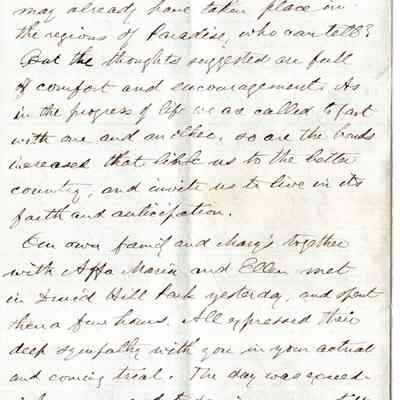 may already have taken place in
the regions of Paradise, who can tell?
But the thoughts suggested are full
of comfort and encouragement. As
in the progress of life we are called to part
with one and another, so are the bonds
increased that link us to the better
country, and invite us to live in its
faith and anticipation.
Our own family and Mary's together
with Affa Maria and Ellen met
in Druid Hill Park yesterday, and spent
there a few hours. All expressed their
deep sympathy with you in your actual
and coming trial. The day was exceed-